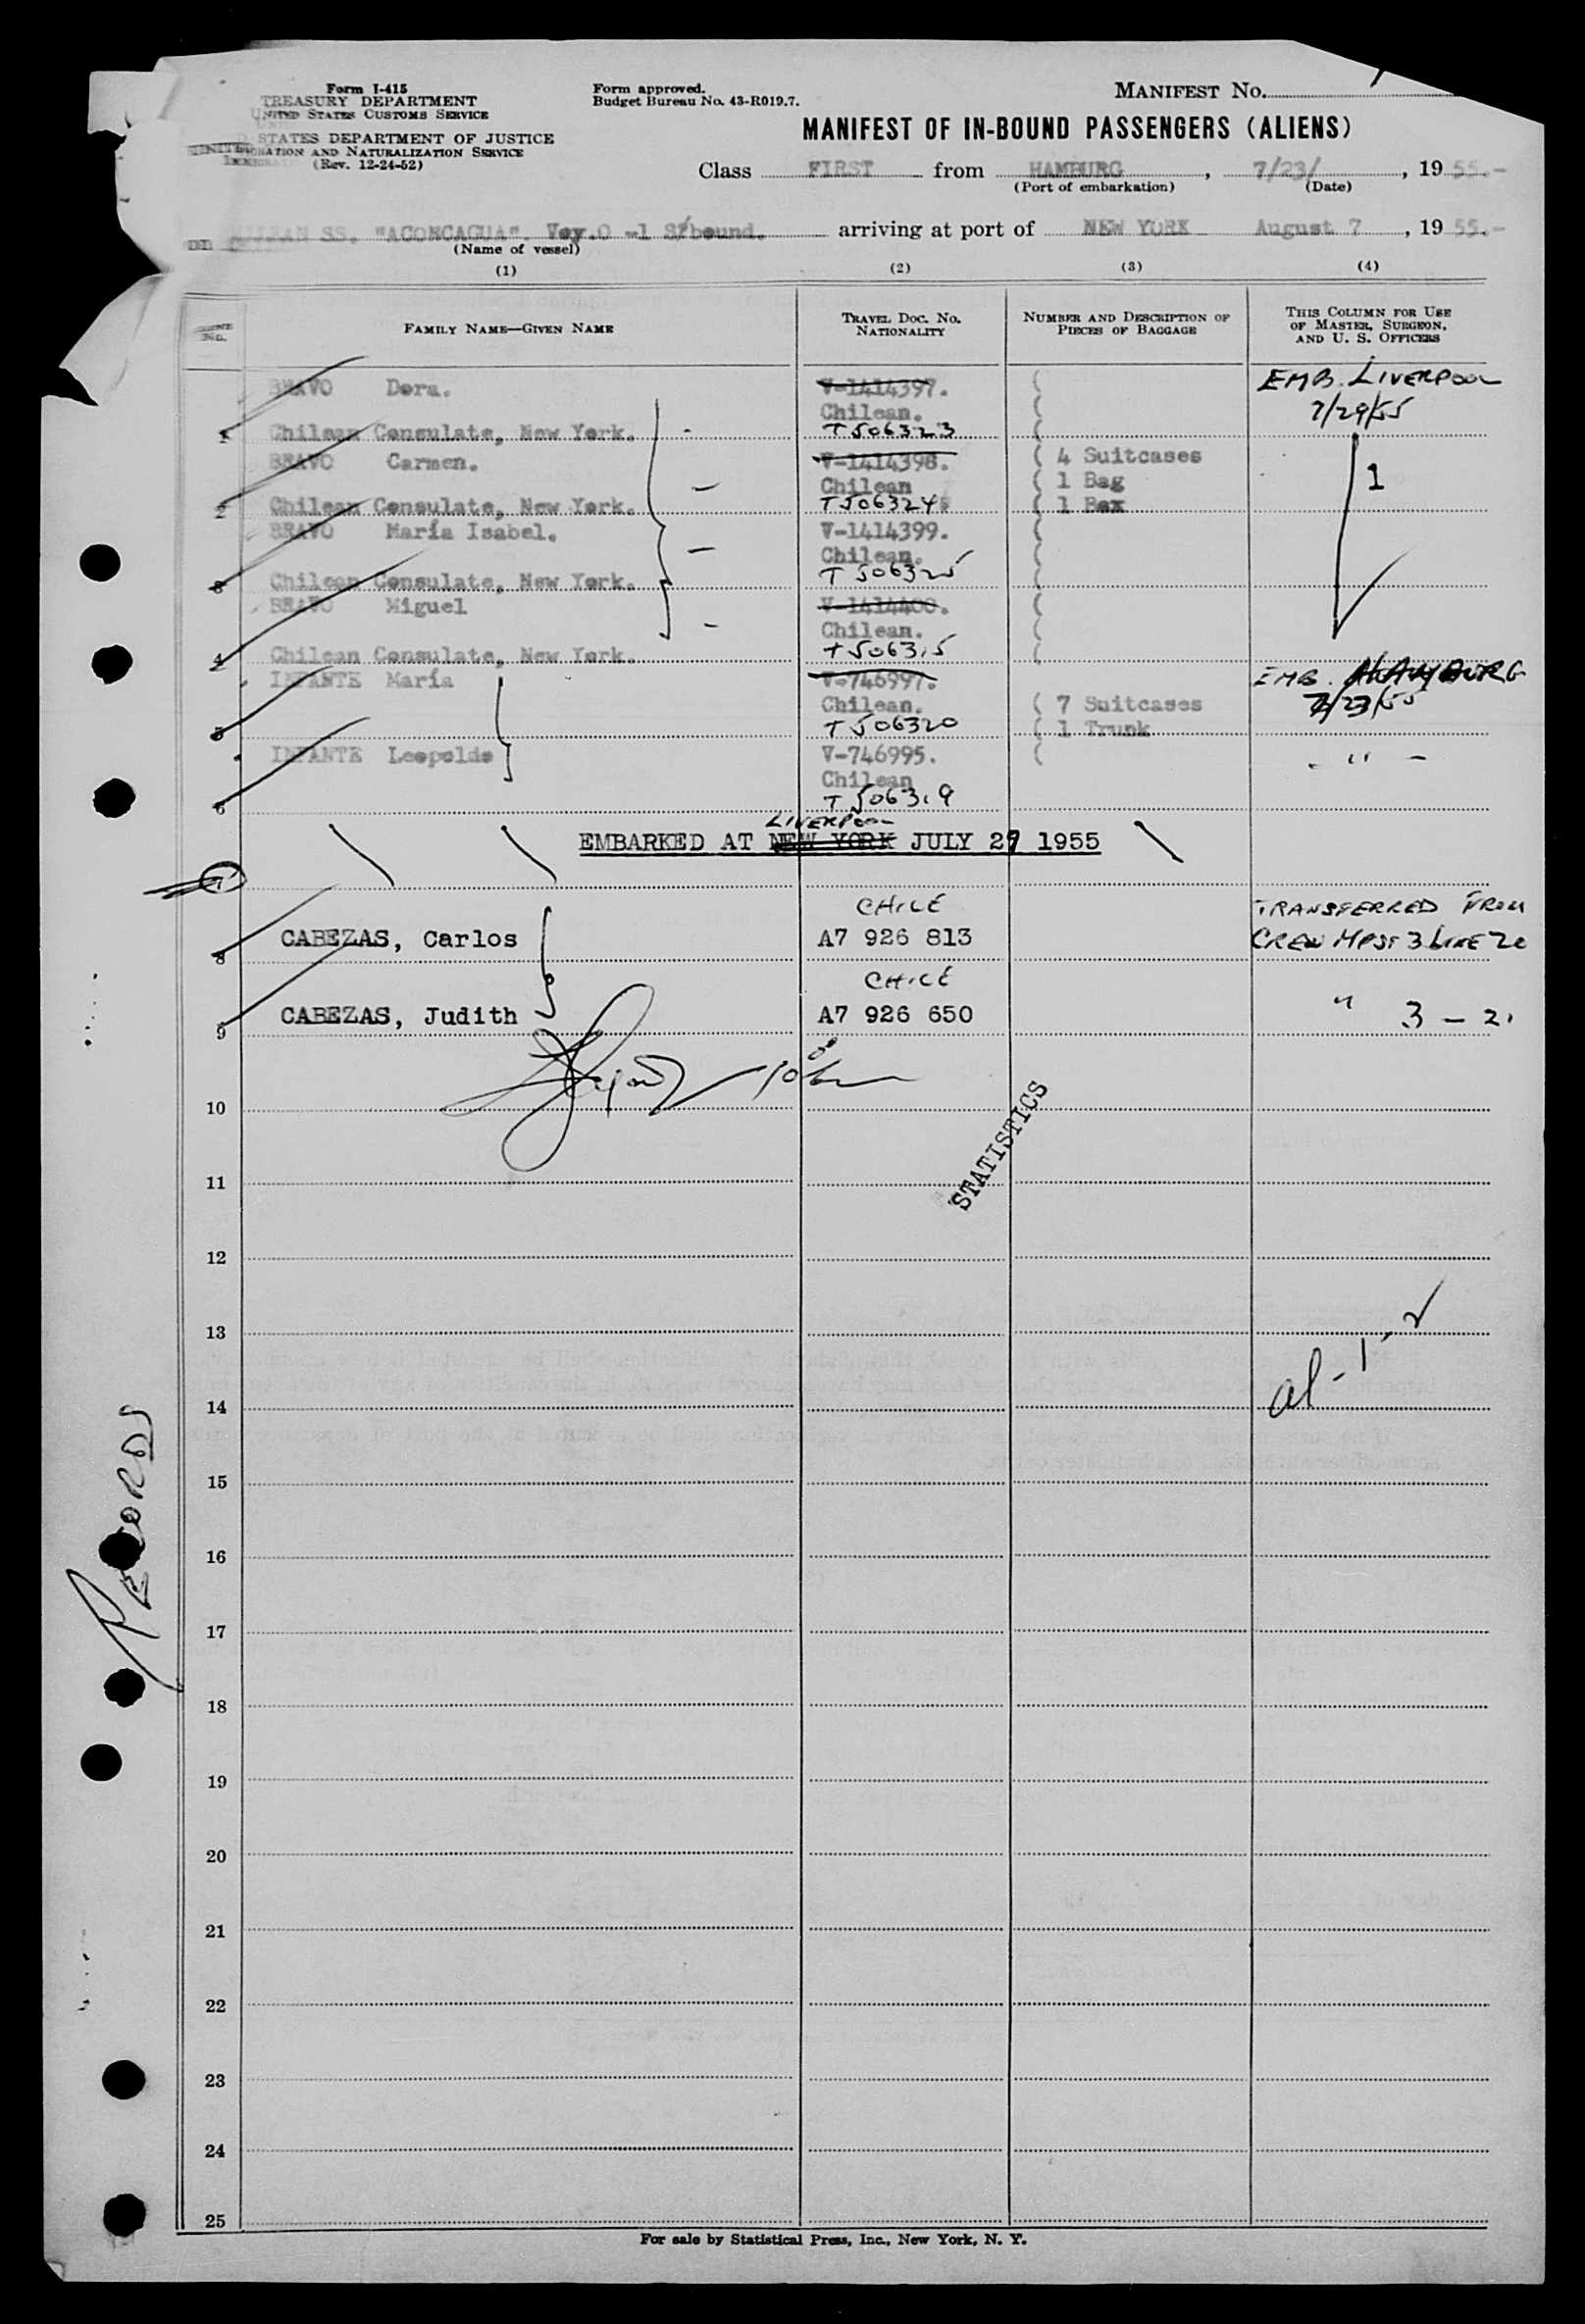 Form I-415
TREASURY DEPARTMENT
UNITED STATES CUSTOMS SERVICE
STATES DEPARTMENT OF JUSTICE
AND NATURALIZATION SERVICE
(Rev. 12-24-52)
Form approved.
Budget Bureau No. 43-R019.7.
MANIFEST NO.
MANIFEST OF IN-BOUND PASSENGERS (ALIENS)
Class FIRST from HAMBURG, 7/23/, 1955.-
(Port of embarkation) (Date)
SS. "ACONCAGUA". Voy.0 -1 S/bound. arriving at port of NEW YORK August 7, 1955.-
(Name of vessel)
(1) (2) (3) (4)
NO. FAMILY NAME—GIVEN NAME TRAVEL DOC. NO. NATIONALITY NUMBER AND DESCRIPTION OF PIECES OF BAGGAGE THIS COLUMN FOR USE OF MASTER, SURGEON, AND U. S. OFFICERS
BRAVO Dora. V-1414397. ( EMB. LIVERPOOL
Chilean. ( 7/29/55
1 Chilean Consulate, New York. T506323 (
BRAVO Carmen. V-1414398. ( 4 Suitcases
Chilean ( 1 Bag 1
2 Chilean Consulate, New York. T506324 ( 1 Box
BRAVO María Isabel. V-1414399. (
Chilean. (
3 Chilean Consulate, New York. T506325 (
BRAVO Miguel V-1414400. (
Chilean. (
4 Chilean Consulate, New York. T506315 (
INFANTE María V-746997. EMB. HAMBURG
Chilean. ( 7 Suitcases 7/23/55
5 T506320 ( 1 Trunk
INFANTE Leopoldo V-746995. ( " -
Chilean
6 T506319
LIVERPOOL
EMBARKED AT NEW YORK JULY 29 1955
7
CHILE TRANSFERRED FROM
8 CABEZAS, Carlos A7 926 813 CREW MPST 3 LINE 20
CHILE
9 CABEZAS, Judith A7 926 650 " 3 - 21
10
STATISTICS
11
12
13
14 al-1,
15
RECORDS
16
17
18
19
20
21
22
23
24
25
For sale by Statistical Press, Inc., New York, N. Y.